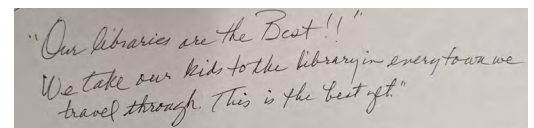 "Our libraries are the Best!!"
We take our kids to the library in every town we
travel through. This is the best yet."